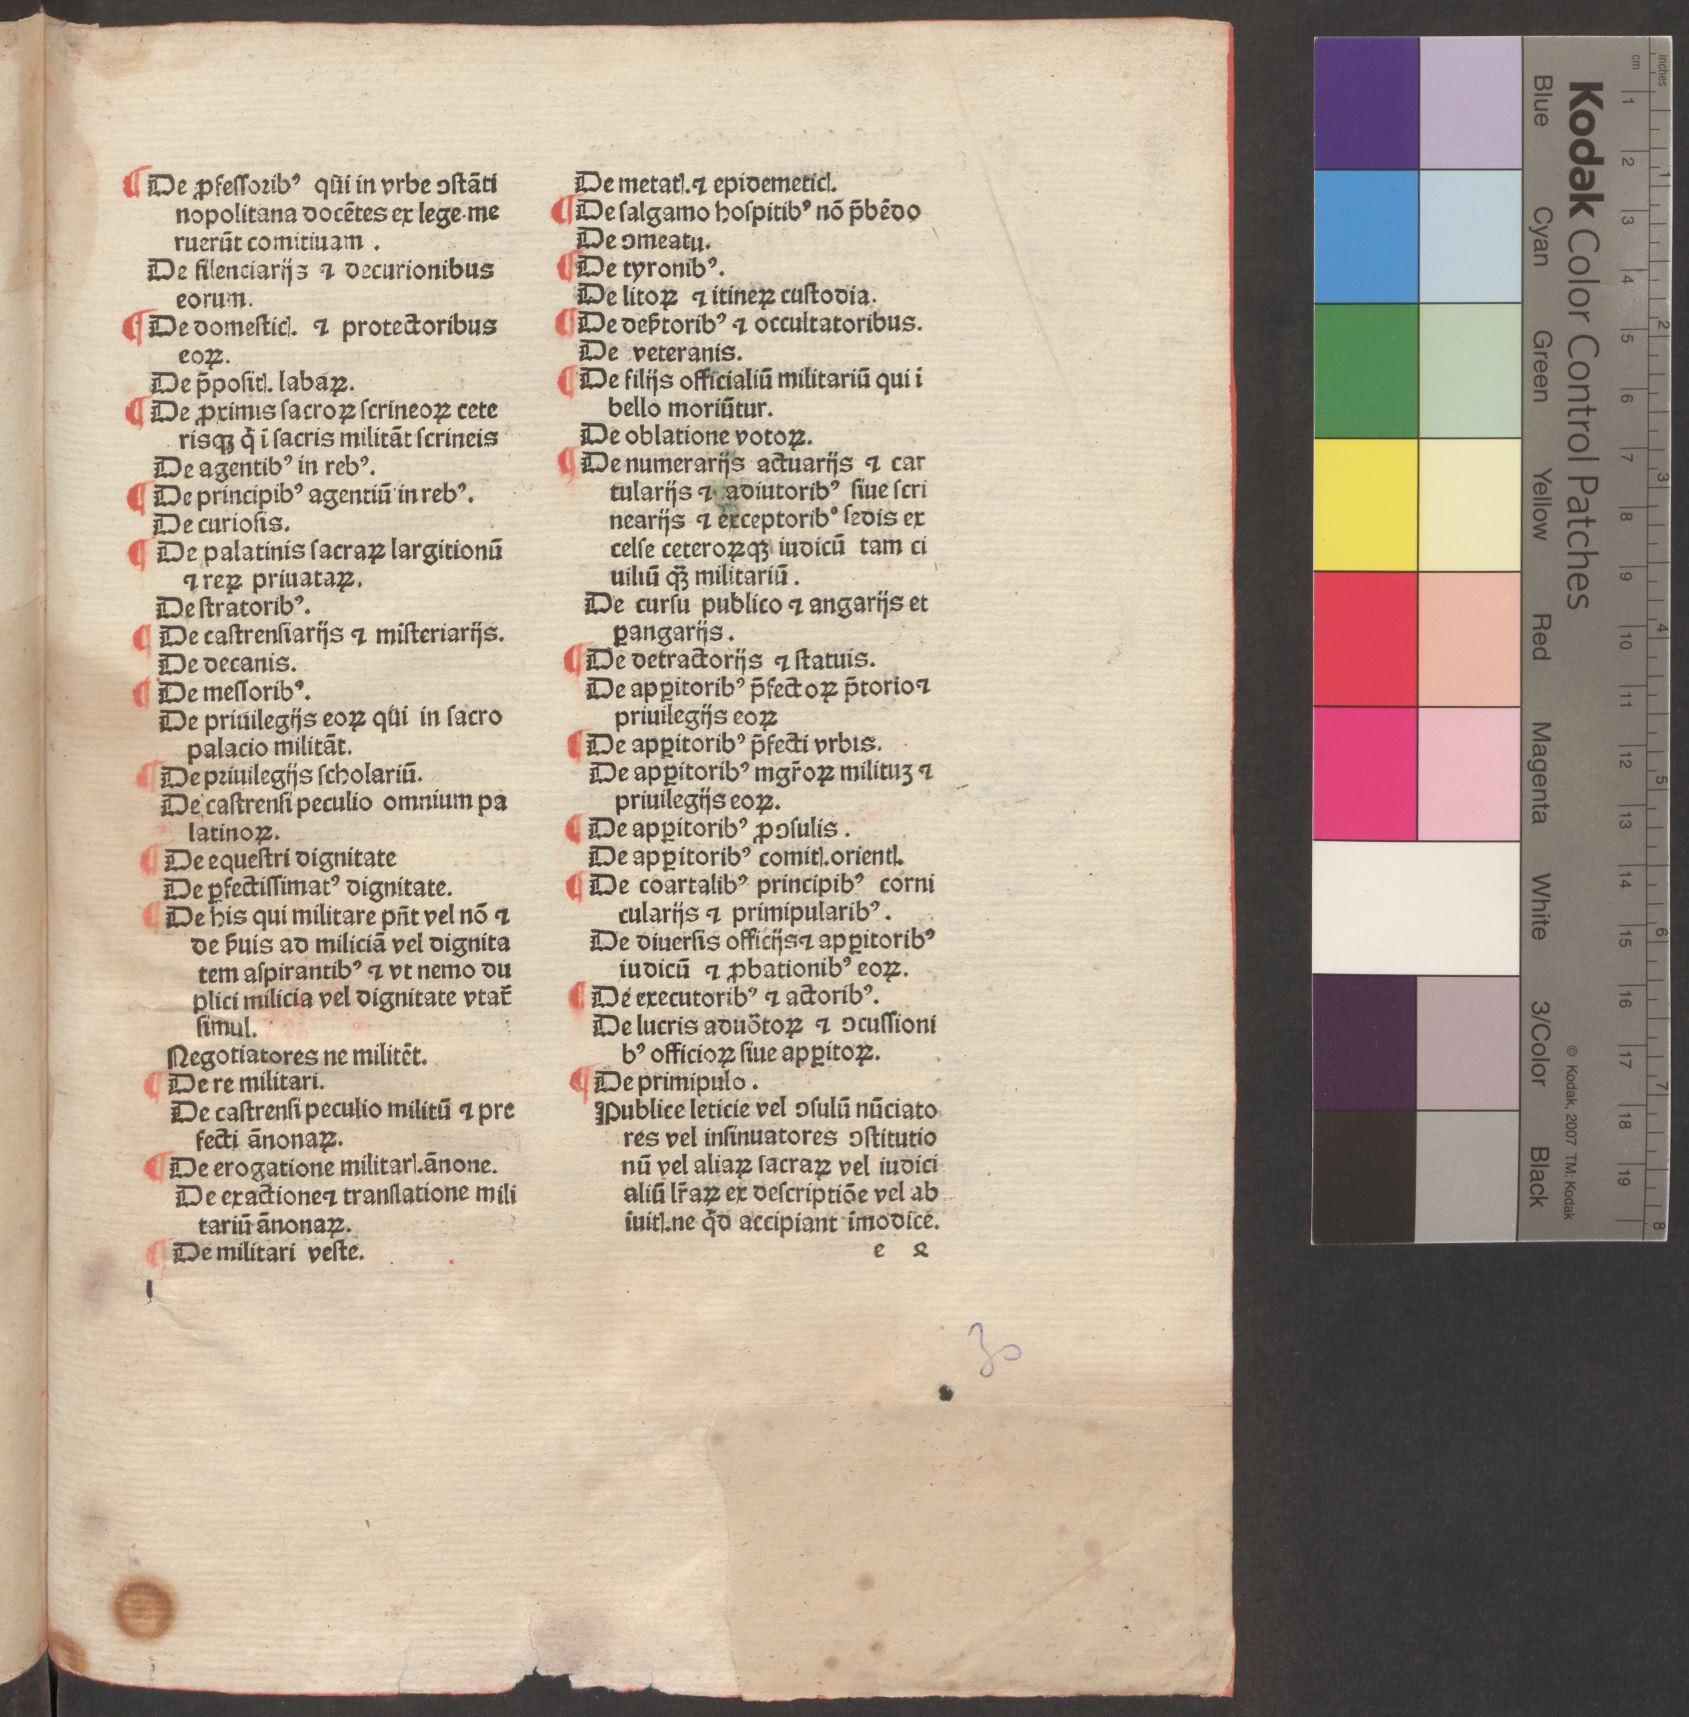 ¶ De ꝓfessoribꝰ qui in vrbe ↄstāti
nopolitana docētes ex lege me
ruerūt comitiuam .
De silenciarijs ⁊ decurionibus
eorum.
¶ De domesticꝉ. ⁊ protectoribus
eoꝝ.
De p̄positꝉ. labaꝝ.
¶ De ꝓximis sacroꝝ scrineoꝝ cete
risqꝫ q̇ ī sacris militāt scrineis
De agentibꝰ in rebꝰ.
¶ De principibꝰ agentiū in rebꝰ.
De curiosis.
¶ De palatinis sacraꝝ largitionū
⁊ reꝝ priuataꝝ.
De stratoribꝰ.
¶ De castrensiarijs ⁊ misteriarijs.
De decanis.
¶ De messoribꝰ.
De priuilegijs eoꝝ qui in sacro
palacio militāt.
¶ De priuilegijs scholariū.
De castrensi peculio omnium pa
latinoꝝ.
¶ De equestri dignitate
De ꝑfectissimatꝰ dignitate.
¶ De his qui militare pn̄t vel nō ⁊
de ẜuis ad miliciā vel dignita
tem aspirantibꝰ ⁊ vt nemo du
plici milicia vel dignitate vtat̄
simul.
Negotiatores ne militēt.
¶ De re militari.
De castrensi peculio militū ⁊ pre
fecti ānonaꝝ.
¶ De erogatione militarꝉ. ānone.
De exactione ⁊ translatione mili
tariū ānonaꝝ.
¶ De militari veste.
De metatꝉ. ⁊ epidemeticꝉ.
¶ De salgamo hospitibꝰ nō p̄bēdo
De ↄmeatu.
¶ De tyronibꝰ.
De litoꝝ ⁊ itineꝝ custodia.
¶ De deẜtoribꝰ ⁊ occultatoribus.
De veteranis.
¶ De filijs officialiū militariū qui ī
bello moriūtur.
De oblatione votoꝝ.
¶ De numerarijs actuarijs ⁊ car
tularijs ⁊ adiutoribꝰ siue scri
nearijs ⁊ exceptoribꝰ sedis ex
celse ceteroꝝqꝫ iudicū tam ci
uiliū qꝫ̄ militariū .
De cursu publico ⁊ angarijs et
ꝑangarijs .
¶ De detractorijs ⁊ statuis.
De apꝑitoribꝰ p̄fectoꝝ p̄torio ⁊
priuilegijs eoꝝ
¶ De apꝑitoribꝰ p̄fecti vrbis.
De apꝑitoribꝰ mgr̄oꝝ milituꝫ ⁊
priuilegijs eoꝝ.
¶ De apꝑitoribꝰ ꝓↄsulis .
De apꝑitoribꝰ comitꝉ. orientꝉ.
¶ De coartalibꝰ principibꝰ corni
cularijs ⁊ primipularibꝰ .
De diuersis officijs ⁊ apꝑitoribꝰ
iudicū ⁊ ꝓbationibꝰ eoꝝ.
¶ De executoribꝰ ⁊ actoribꝰ.
De lucris aduōtoꝝ ⁊ ↄcussioni
bꝰ officioꝝ siue apꝑitoꝝ.
¶ De primipulo .
Publice leticie vel ↄsulū nūciato
res vel insinuatores ↄstitutio
nū vel aliaꝝ sacraꝝ vel iudici
aliū lr̄aꝝ ex descriptiōe vel ab
īuitꝉ. ne qḋ accipiant īmodice.
e 2
30
Kodak Color Control Patches
Blue
Cyan
Green
Yellow
Red
Magenta
White
3/Color
Black
© Kodak, 2007 TM: Kodak
inches
1 2 3 4 5 6 7 8
cm
1 2 3 4 5 6 7 8 9 10 11 12 13 14 15 16 17 18 19